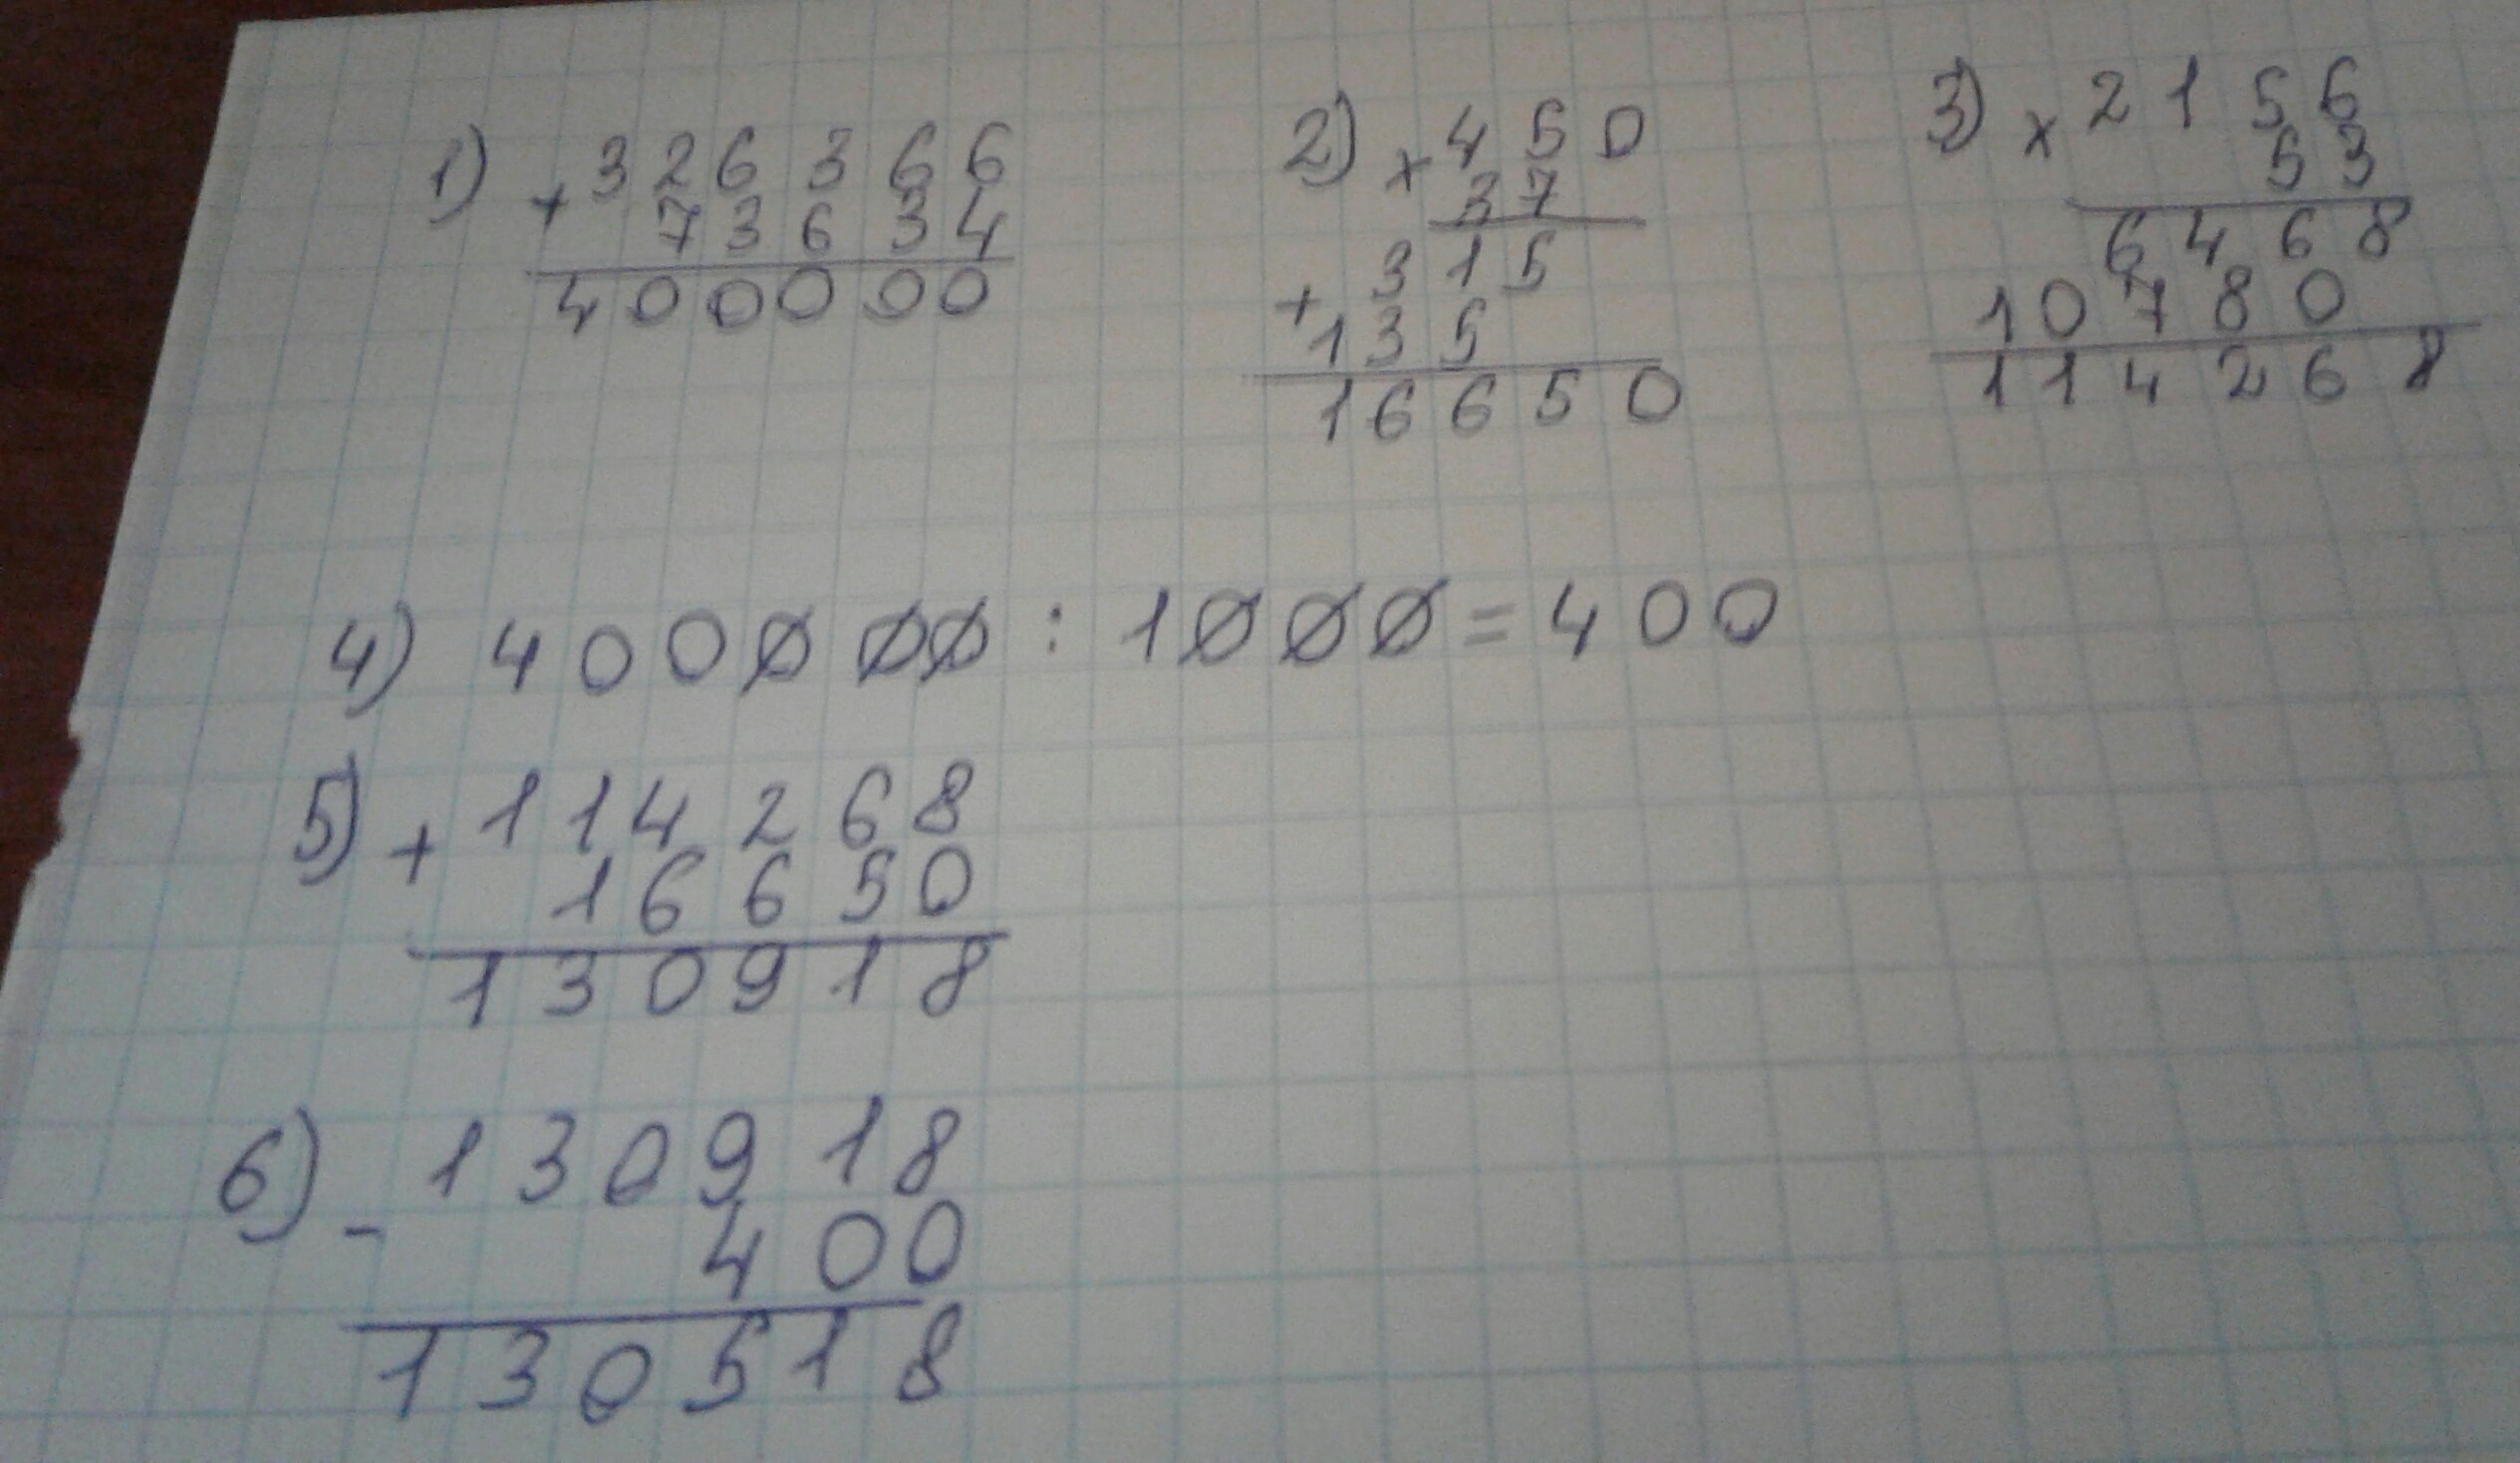 1) + 326366
73634
400000
2) × 450
37
315
+ 135
16650
3) × 2156
53
6468
10780
114268
4) 400000 : 1000 = 400
5) + 114268
16650
130918
6) - 130918
400
130518